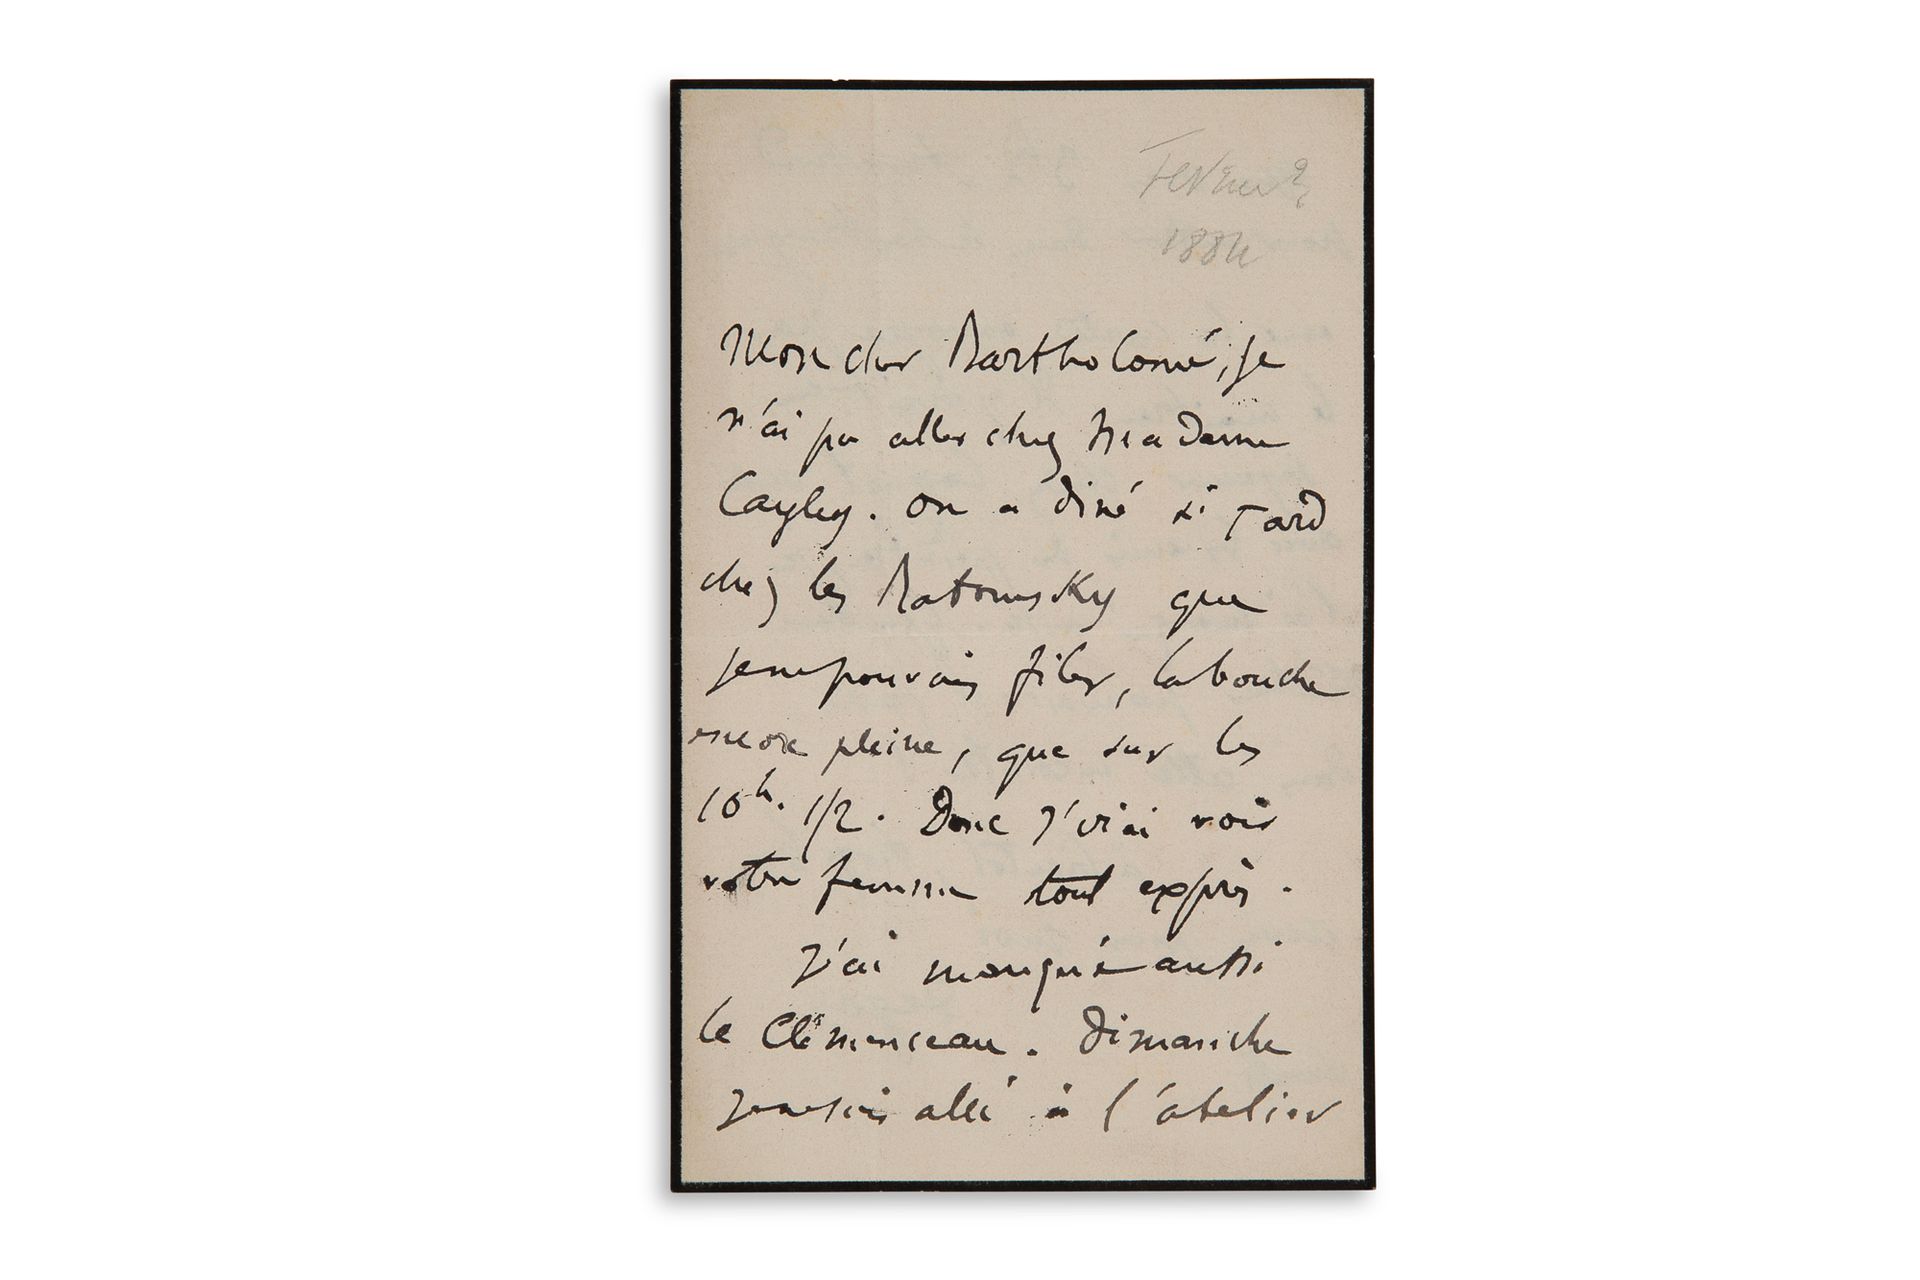 Fevrier ?
1884
Mon cher Bartholomé, je
n'ai pu aller chez Madame
Cayley. On a diné si tard
chez les
que
je ne pouvais filer, la bouche
encore pleine, que sur les
10h. 1/2. Donc j'irai voir
votre femme tout exprès.
J'ai manqué aussi
le Clémenceau. Dimanche
je ne suis allé à l'atelier